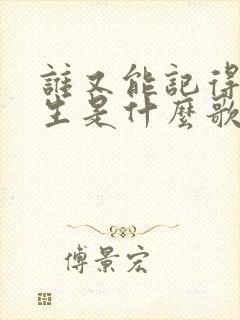 誰又能記得
生是什麼歌
傅景宏